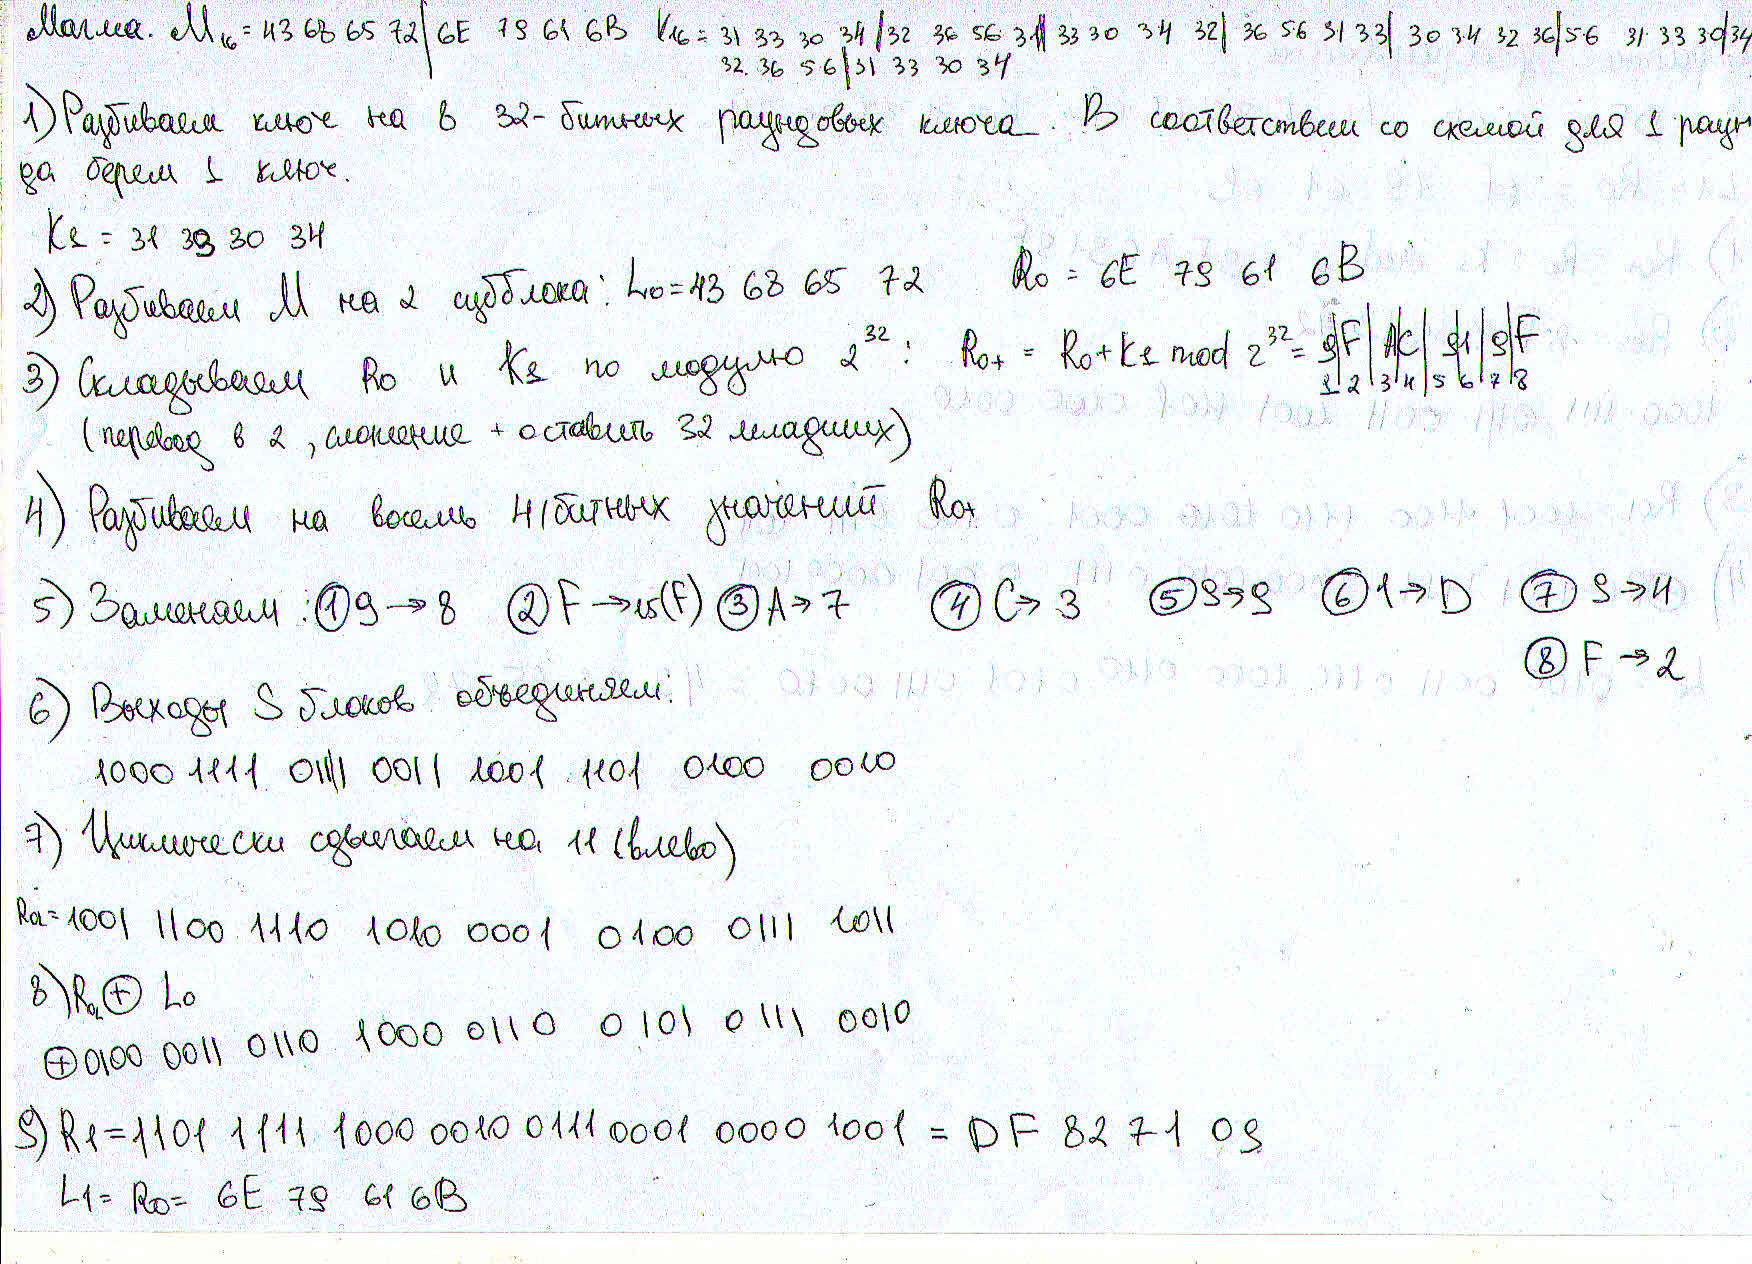 Магма. M₁₆ = 43 68 65 72 | 6E 79 61 6B K₁₆ = 31 33 30 34 | 32 36 56 31 | 33 30 34 32 | 36 56 31 33 | 30 34 32 36 | 56 31 33 30 | 34
32 36 56 | 31 33 30 34
1) Разбиваем ключ на 8 32-битных раундовых ключа. В соответствии со схемой для 1 раун
да берем 1 ключ.
K1 = 31 33 30 34
2) Разбиваем M на 2 субблока: L0 = 43 68 65 72 R0 = 6E 79 61 6B
3) Складываем R0 и K1 по модулю 2³²: R0+ = R0 + K1 mod 2³² = 9|F|A|C|9|1|9|F
1 2 3 4 5 6 7 8
(перевод в 2, сложение + оставить 32 младших)
4) Разбиваем на восемь 4/битных значений R0+
5) Заменяем: ① 9 → 8 ② F → 15(F) ③ A → 7 ④ C → 3 ⑤ 9 → 9 ⑥ 1 → D ⑦ 9 → 4
⑧ F → 2
6) Выходы S блоков объединяем:
1000 1111 0111 0011 1001 1101 0100 0010
7) Циклически сдвигаем на 11 (влево)
1001 1100 1110 1010 0001 0100 0111 1011
8) ⊕ L0
⊕ 0100 0011 0110 1000 0110 0101 0111 0010
9) R1 = 1101 1111 1000 0010 0111 0001 0000 1001 = DF 82 71 09
L1 = R0 = 6E 79 61 6B